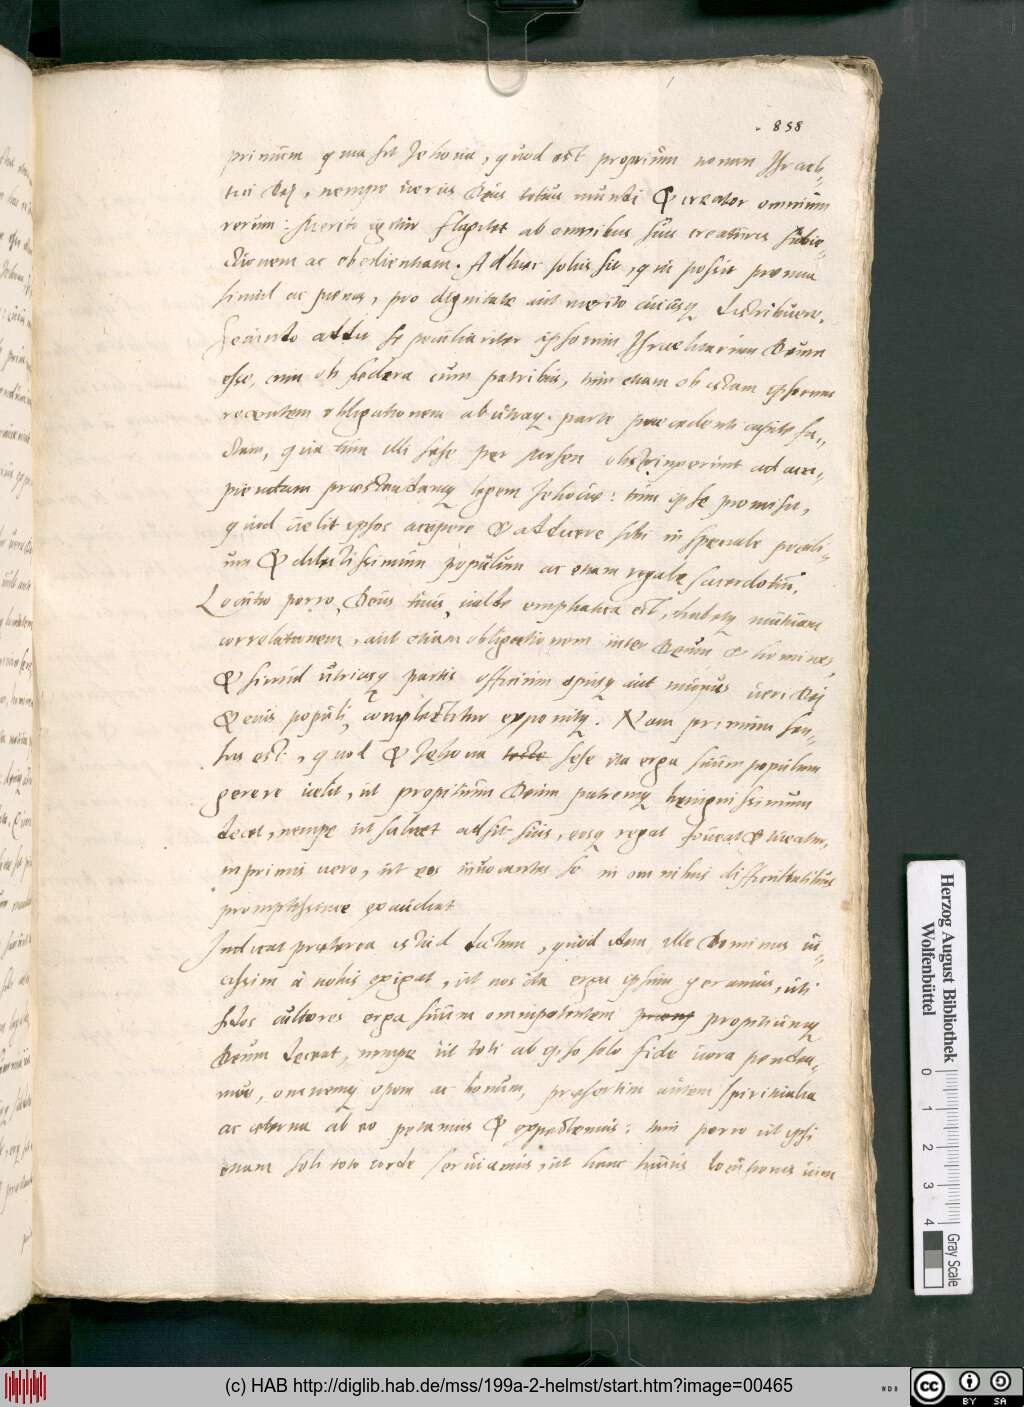 858
primum quia sit Jehova, quod est proprium nomen Israeli-
tici Dei, nempe verus Deus totius mundi & creator omnium
rerum: Merito igitur flagitet ab omnibus suis creaturis subie-
ctionem ac obedientiam. Adhaec solus sit, qui possit praemia
simul ac penas, pro dignitate aut merito cuiusq distribuere.
Secundo addit se peculiariter ipsorum Israelitarum Deum
esse, cum ob federa cum patribus, tum etiam ob istam ipsorum
recentem obligationem ab utraq. parte praecedenti capite fa-
ctam, quia tum illi sese per Mosen obstrinxerunt ad acci-
piendam praestandamq legem Jehovae: tum ipse promisit,
quod velit ipsos accipere & adducere sibi in speciale peculi-
um & dilectissimum populum ac etiam regale sacerdotiu.
Locutio porro, Deus tuus, valde emphatica est, habetq mutuam
correlationem, aut etiam obligationem inter Deum & homines,
& simul utriusq partis officium opusq aut munus veri Dei
& eius populi, complectitur exponitq. Nam primum sen-
sus est, quod & Jehova teste sese ita erga suum populum
gerere velit, ut propitium Deum patremq benignissimum
decet, nempe ut semper adsit suis, eosq regat foveat & tueatur,
inprimis vero, ut eos invocantes se in omnibus difficultatibus
promptissime exaudiat
Indicat praeterea istud dictum, quod etiam ille Dominus vi-
cissim à nobis exigat, ut nos ita erga ipsum geramus, uti
fidos cultores erga suum omnipotentem propitiumq
Deum decet, nempe ut toti ab ipso solo fide vera pendea-
mus, omnemq opem ac bonum, praesertim autem spiritualia
ac aeterna ab eo petamus & expectemus: tum porro ut ipsi
etiam soli toto corde serviamus, ut hanc huius locutionis vim
Herzog August Bibliothek
Wolfenbüttel
0 1 2 3 4
Gray Scale
(c) HAB http://diglib.hab.de/mss/199a-2-helmst/start.htm?image=00465
cc BY SA